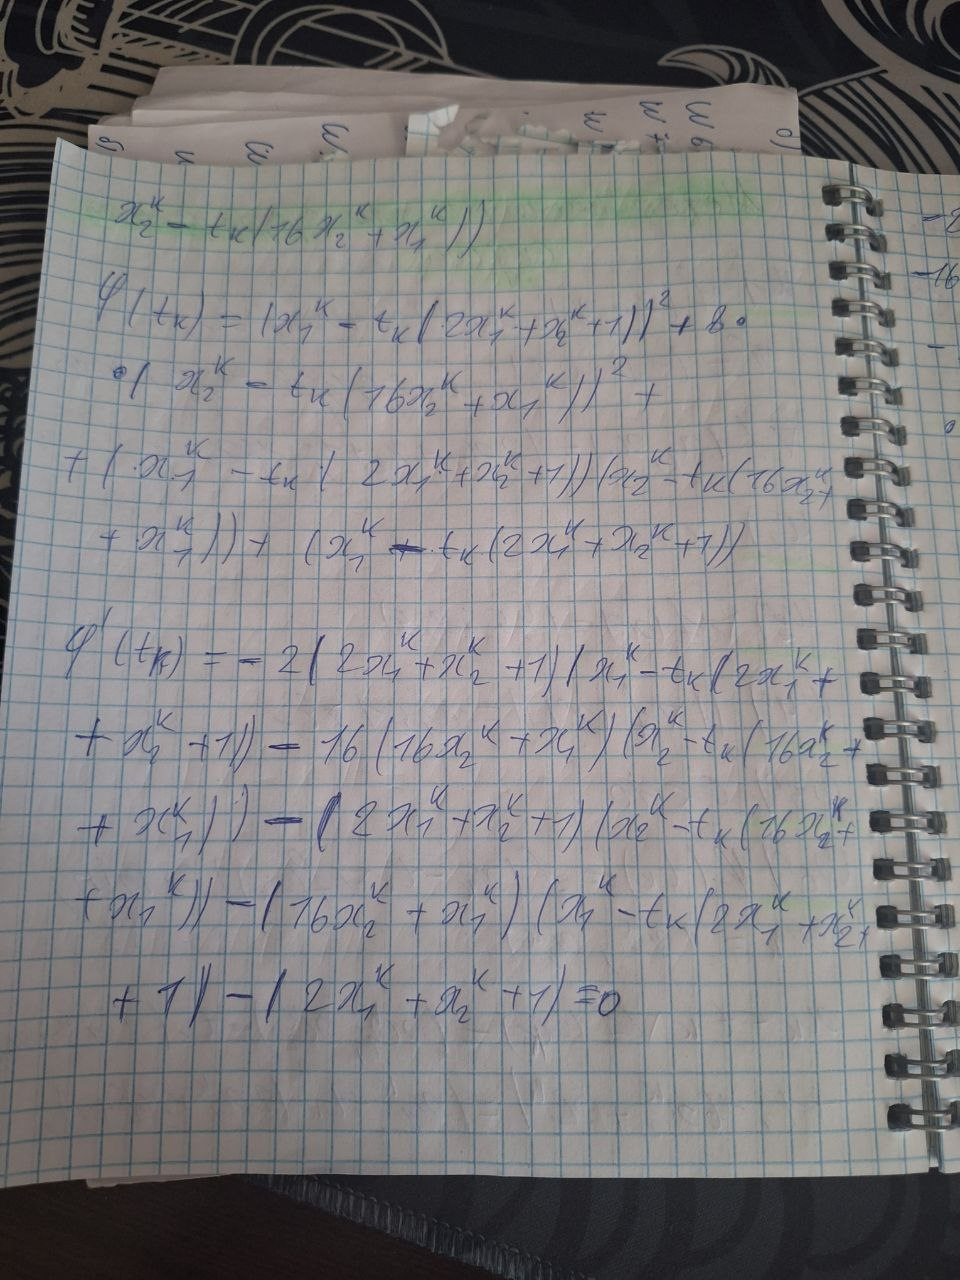 x₂ᵏ - tₖ(16x₂ᵏ + x₁ᵏ))
φ(tₖ) = (x₁ᵏ - tₖ(2x₁ᵏ + x₂ᵏ + 1))² + 8·
·(x₂ᵏ - tₖ(16x₂ᵏ + x₁ᵏ))² +
+ (x₁ᵏ - tₖ(2x₁ᵏ + x₂ᵏ + 1))(x₂ᵏ - tₖ(16x₂ᵏ +
+ x₁ᵏ)) + (x₁ᵏ - tₖ(2x₁ᵏ + x₂ᵏ + 1))
φ'(tₖ) = - 2(2x₁ᵏ + x₂ᵏ + 1)(x₁ᵏ - tₖ(2x₁ᵏ +
+ x₂ᵏ + 1)) - 16(16x₂ᵏ + x₁ᵏ)(x₂ᵏ - tₖ(16x₂ᵏ +
+ x₁ᵏ)) - (2x₁ᵏ + x₂ᵏ + 1)(x₂ᵏ - tₖ(16x₂ᵏ +
+ x₁ᵏ)) - (16x₂ᵏ + x₁ᵏ)(x₁ᵏ - tₖ(2x₁ᵏ + x₂ᵏ +
+ 1) - (2x₁ᵏ + x₂ᵏ + 1) = 0